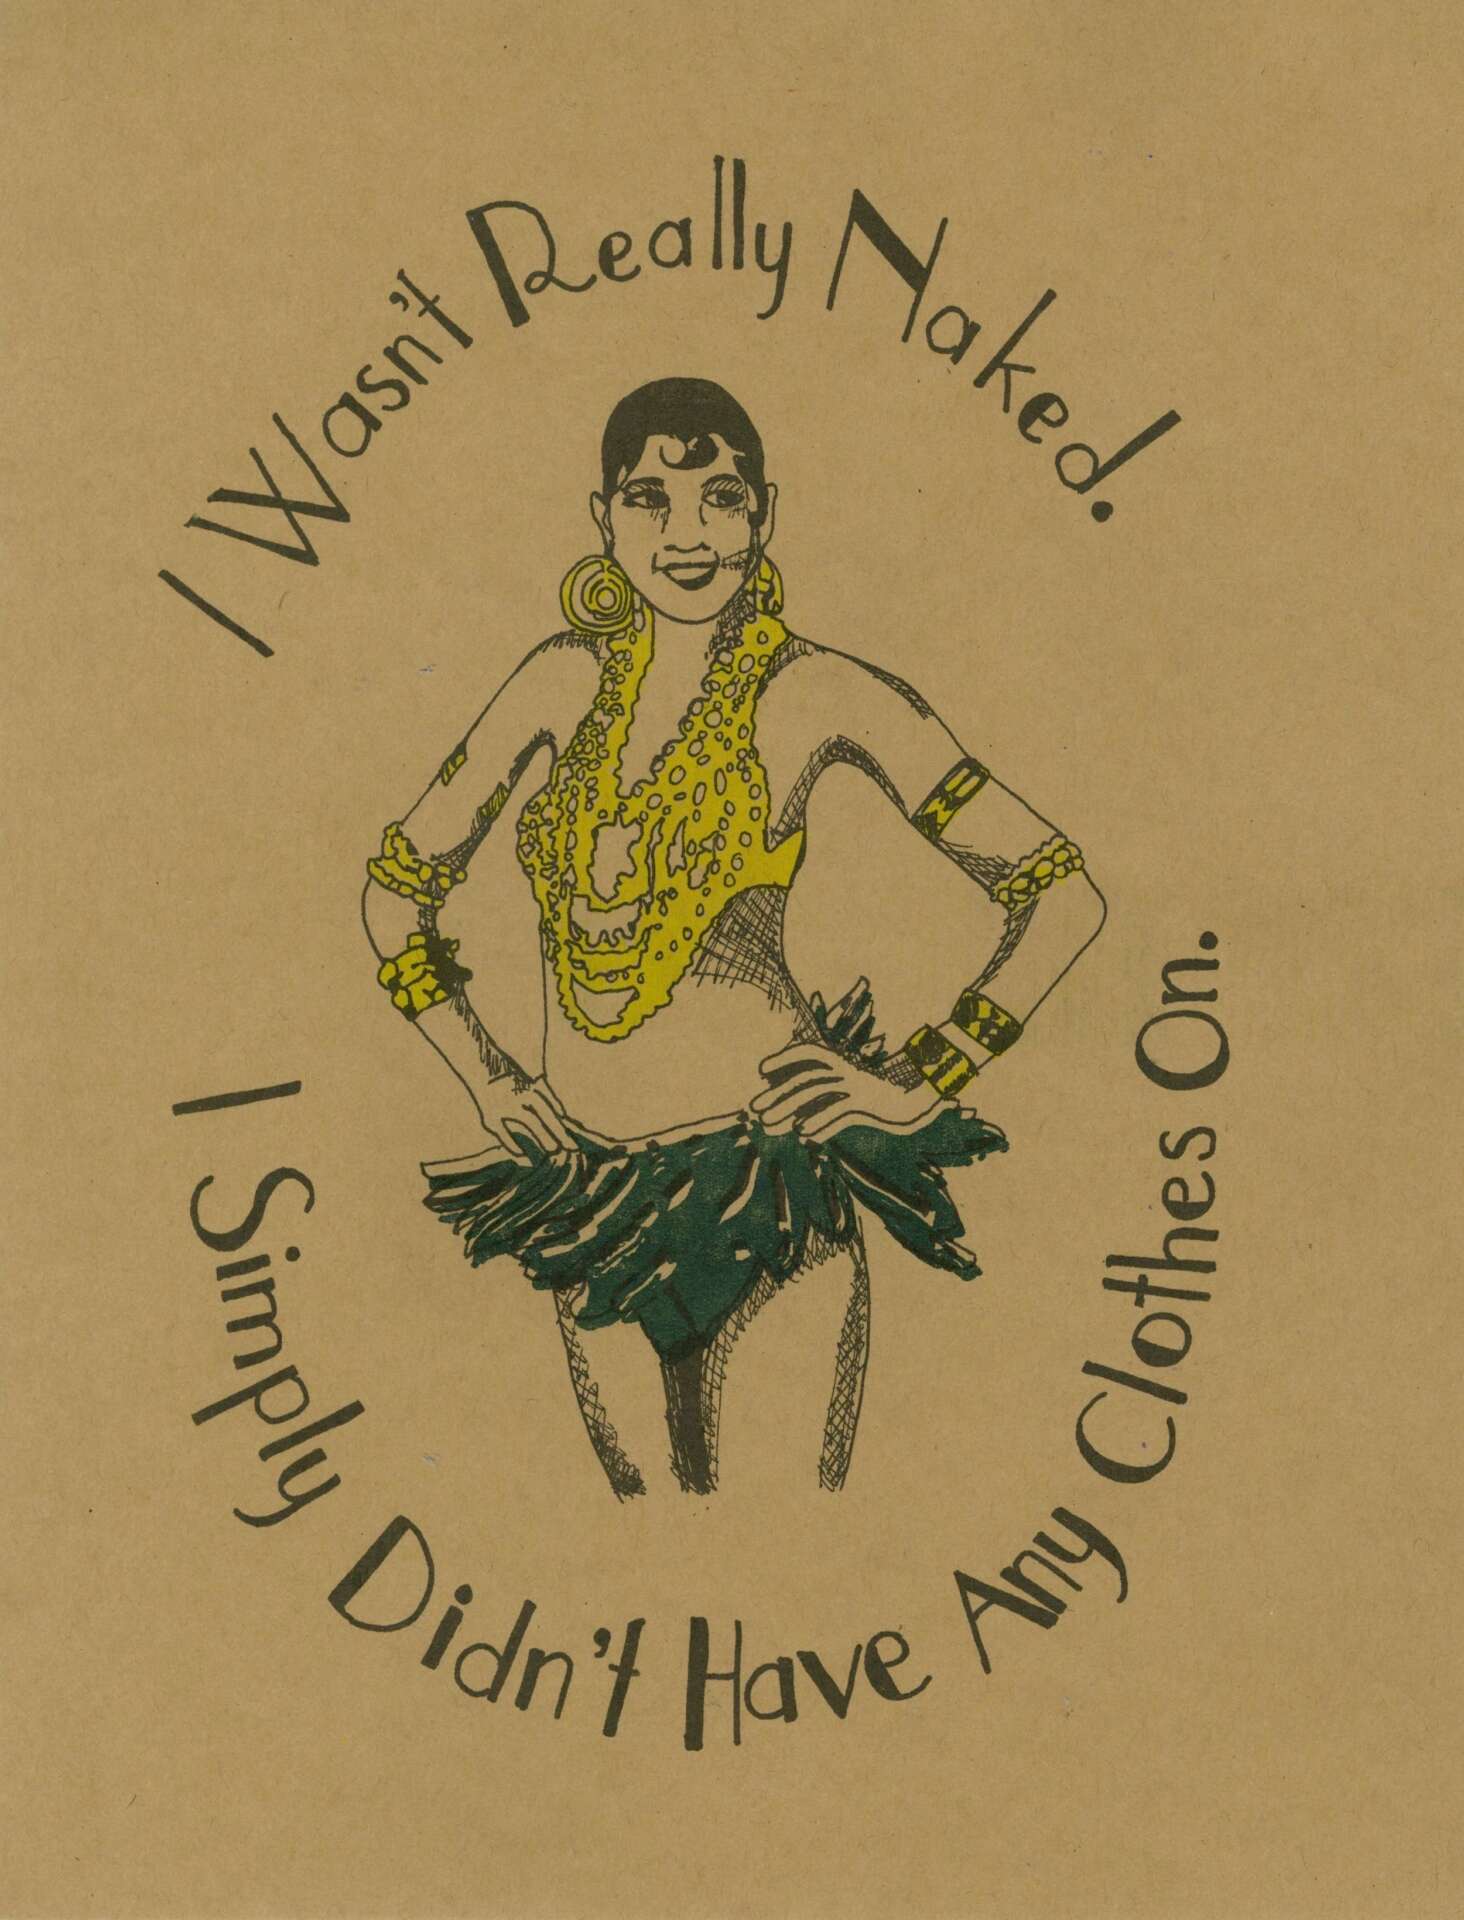 I Wasn't Really Naked.
I Simply Didn't Have Any Clothes On.